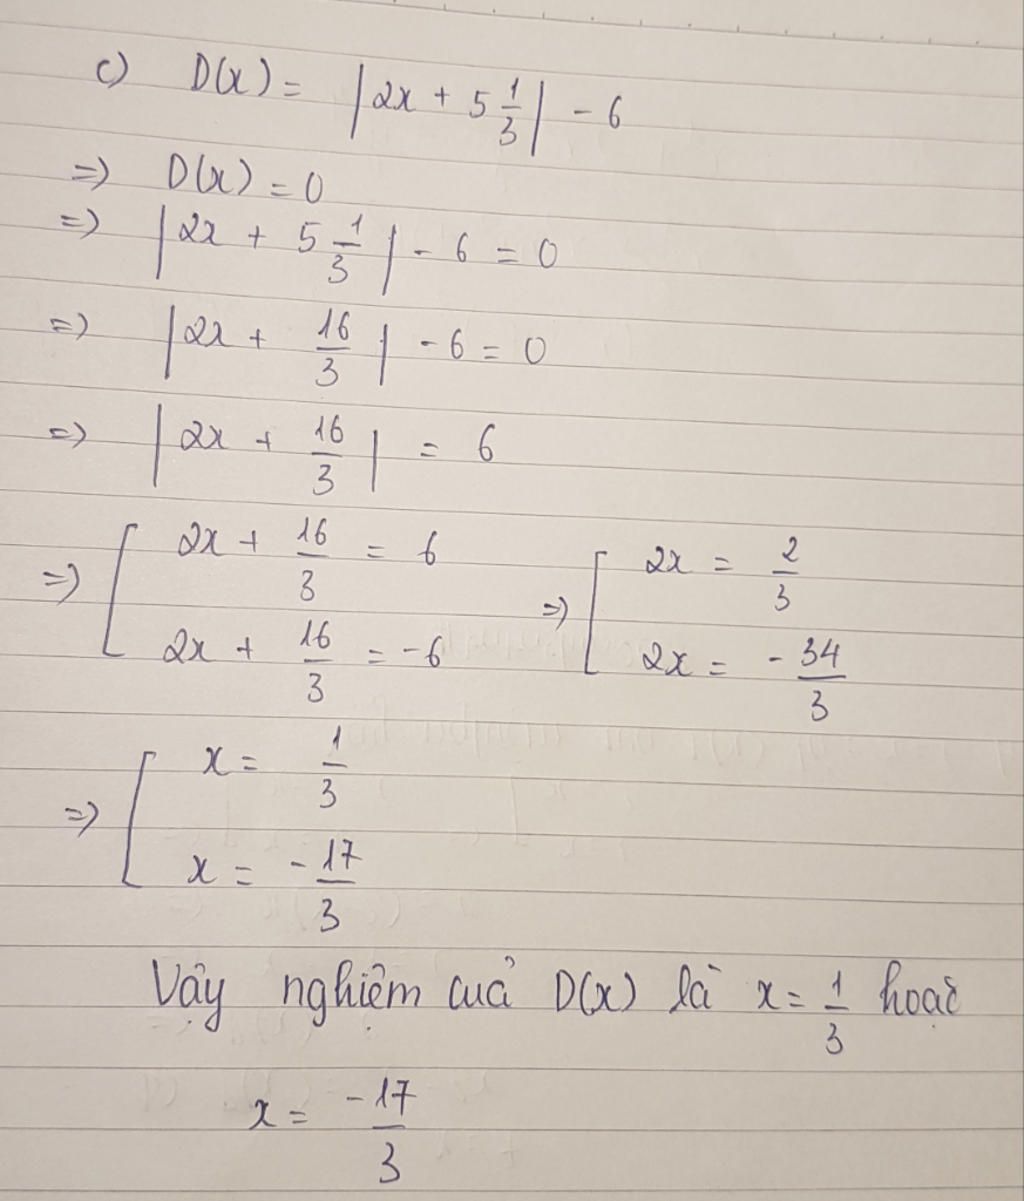 c) D(x) = |2x + 5 1/3| - 6
=> D(x) = 0
=> |2x + 5 1/3| - 6 = 0
=> |2x + 16/3| - 6 = 0
=> |2x + 16/3| = 6
=> [ 2x + 16/3 = 6 => [ 2x = 2/3
2x + 16/3 = -6 2x = - 34/3
=> [ x = 1/3
x = - 17/3
Vậy nghiệm của D(x) là x = 1/3 hoặc
x = -17/3